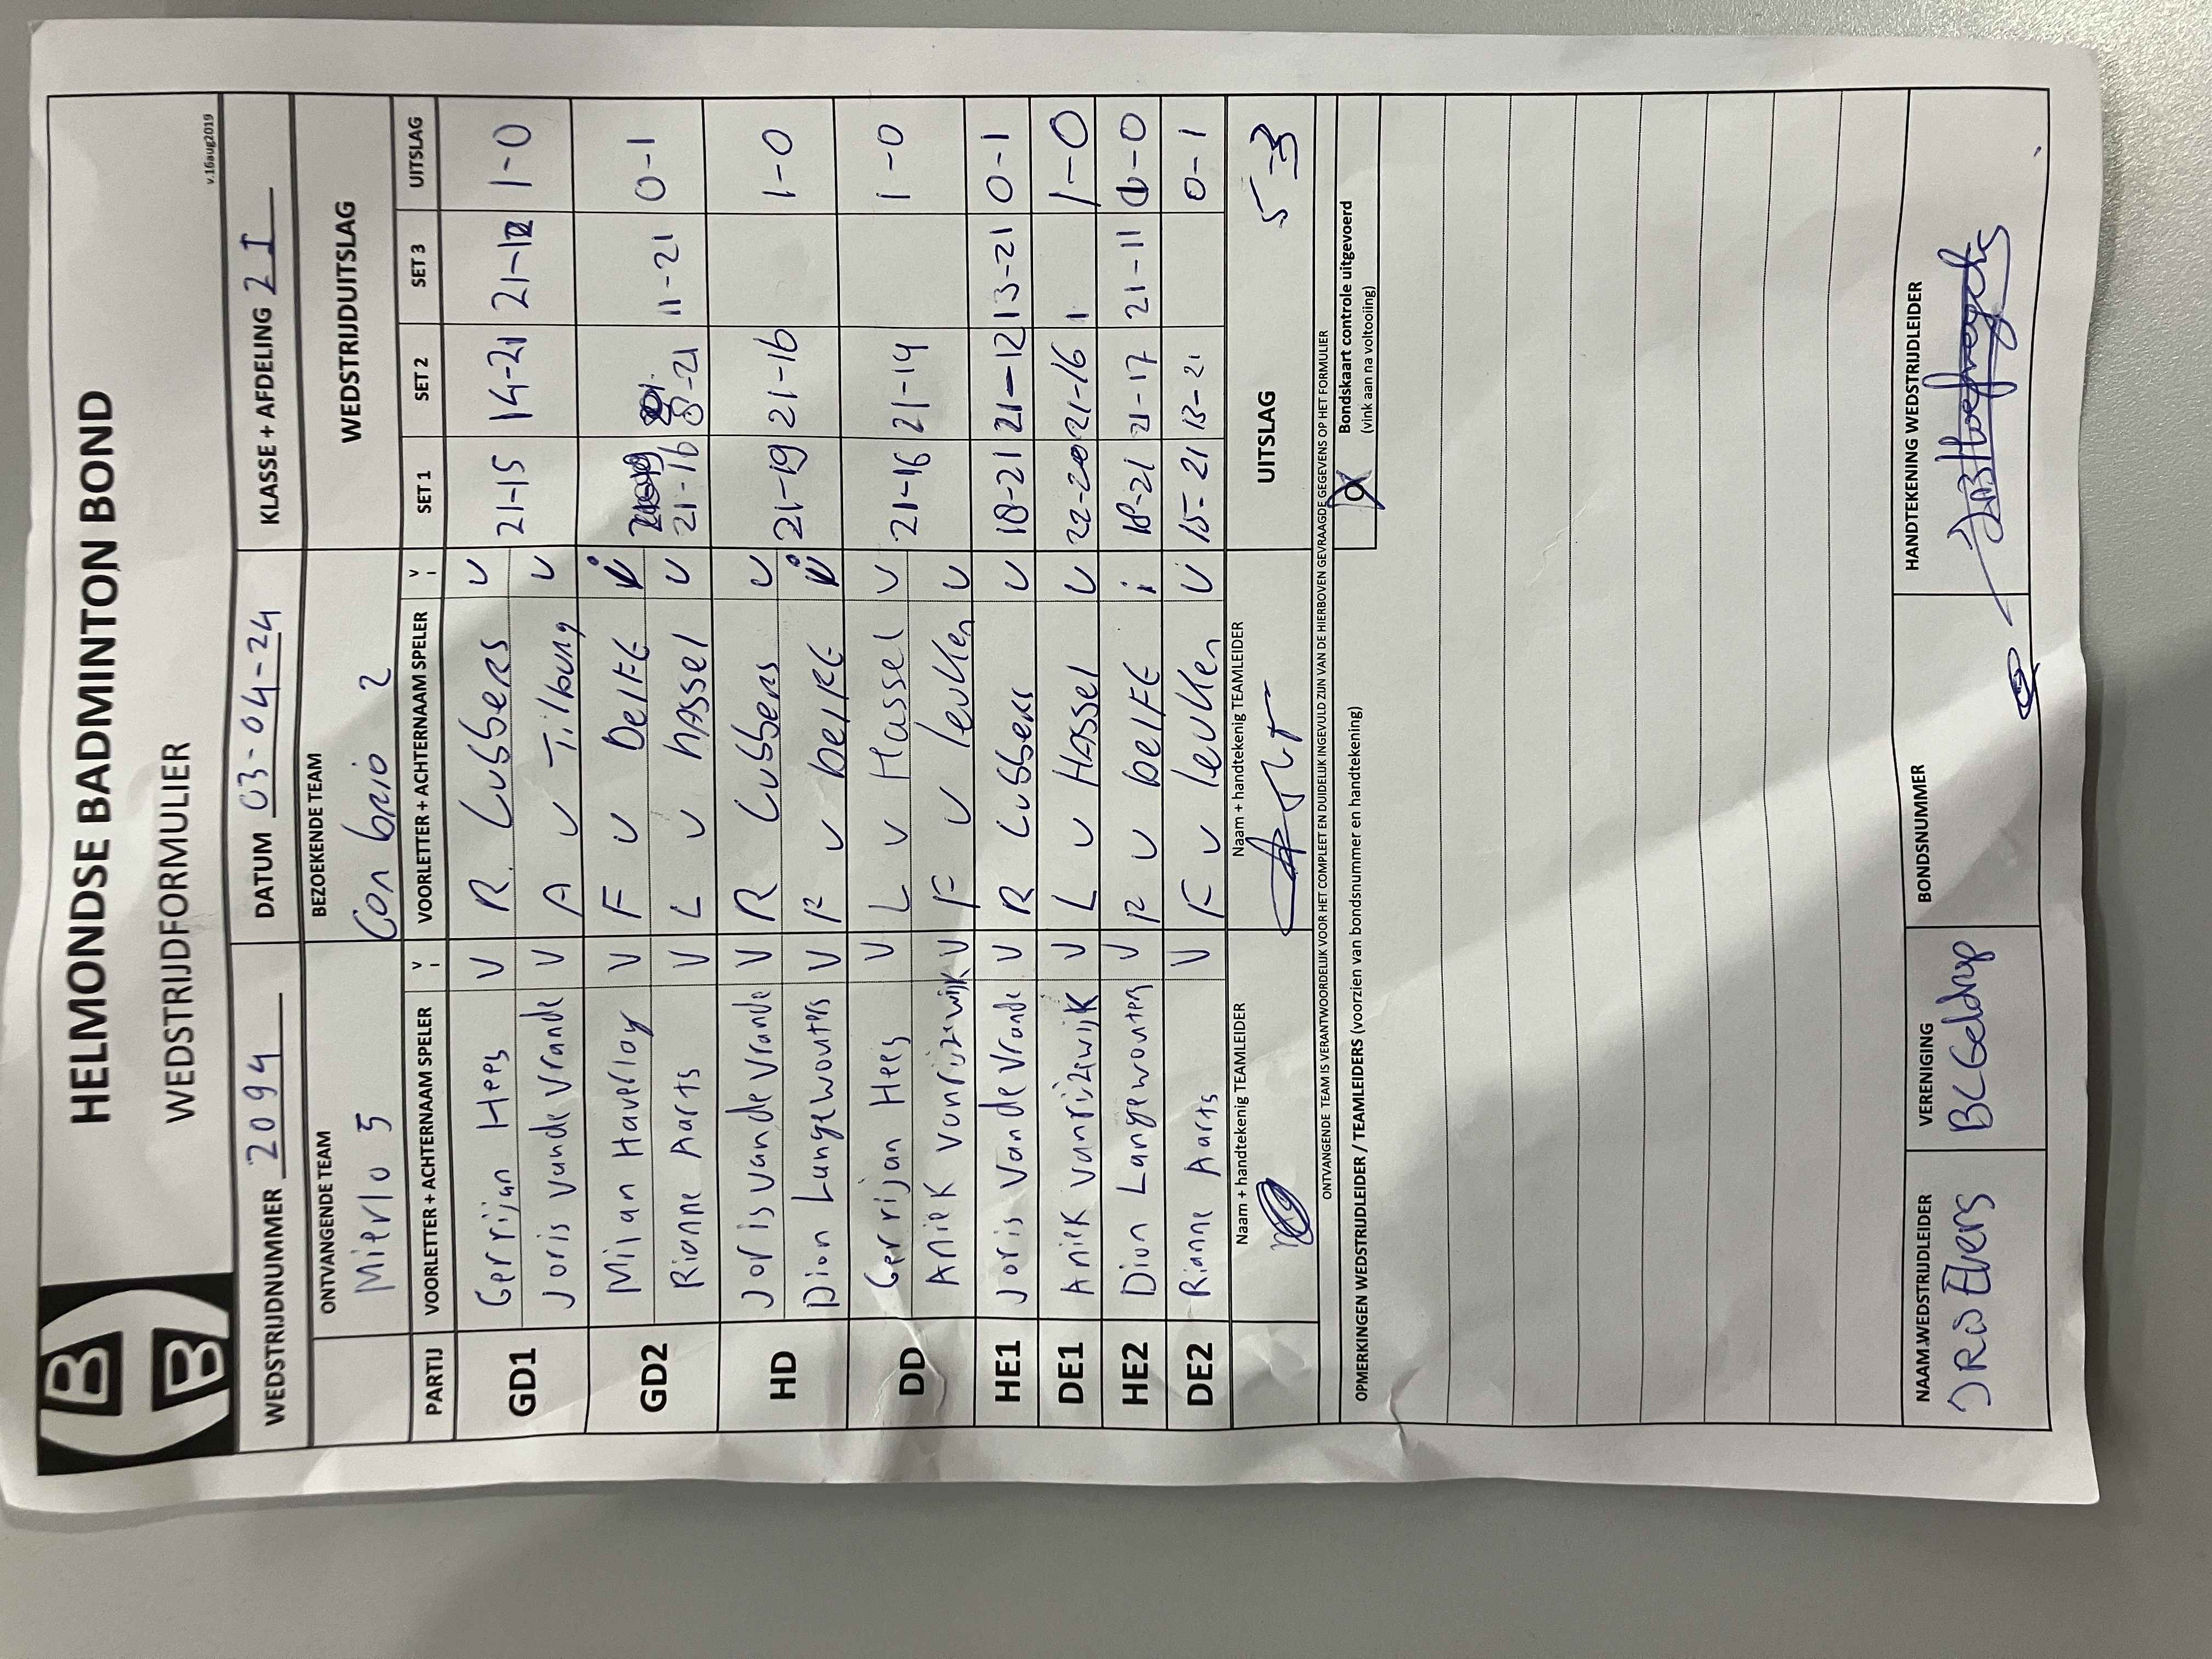 HELMONDSE BADMINTON BOND
WEDSTRIJDFORMULIER
v.16aug2019
WEDSTRIJDNUMMER 2094 DATUM 03-04-24 KLASSE + AFDELING 2I
ONTVANGENDE TEAM BEZOEKENDE TEAM WEDSTRIJDUITSLAG
Mierlo 5 Con brio 2
PARTIJ VOORLETTER + ACHTERNAAM SPELER V I VOORLETTER + ACHTERNAAM SPELER V I SET 1 SET 2 SET 3 UITSLAG
GD1 Gerrijan Hees V R. Lubbers V 21-15 14-21 21-12 1-0
Joris vande Vrande V A v Tilburg V
GD2 Milan Haverlag V F v Delft i 21-16 8-21 11-21 0-1
Rianne Aarts V L v Hassel V
HD Joris vande Vrande V R Lubbers V 21-19 21-16 1-0
Dion Langewouters V F v Delft i
DD Gerrijan Hees V L v Hassel V 21-16 21-14 1-0
Aniek vanrijzewijk V F v leuken V
HE1 Joris Vande Vrande V R Lubbers V 18-21 21-12 13-21 0-1
DE1 Aniek vanrijzewijk V L v Hassel V 22-20 21-16 1-0
HE2 Dion Langewouters V F v Delft i 18-21 21-17 21-11 1-0
DE2 Rianne Aarts V F v leuken V 15-21 13-21 0-1
Naam + handtekenig TEAMLEIDER Naam + handtekenig TEAMLEIDER UITSLAG 5-3
ONTVANGENDE TEAM IS VERANTWOORDELIJK VOOR HET COMPLEET EN DUIDELIJK INGEVULD ZIJN VAN DE HIERBOVEN GEVRAAGDE GEGEVENS OP HET FORMULIER
OPMERKINGEN WEDSTRIJDLEIDER / TEAMLEIDERS (voorzien van bondsnummer en handtekening)
Bondskaart controle uitgevoerd
(vink aan na voltooiing)
NAAM WEDSTRIJDLEIDER VERENIGING BONDSNUMMER HANDTEKENING WEDSTRIJDLEIDER
Evers BC Geldrop